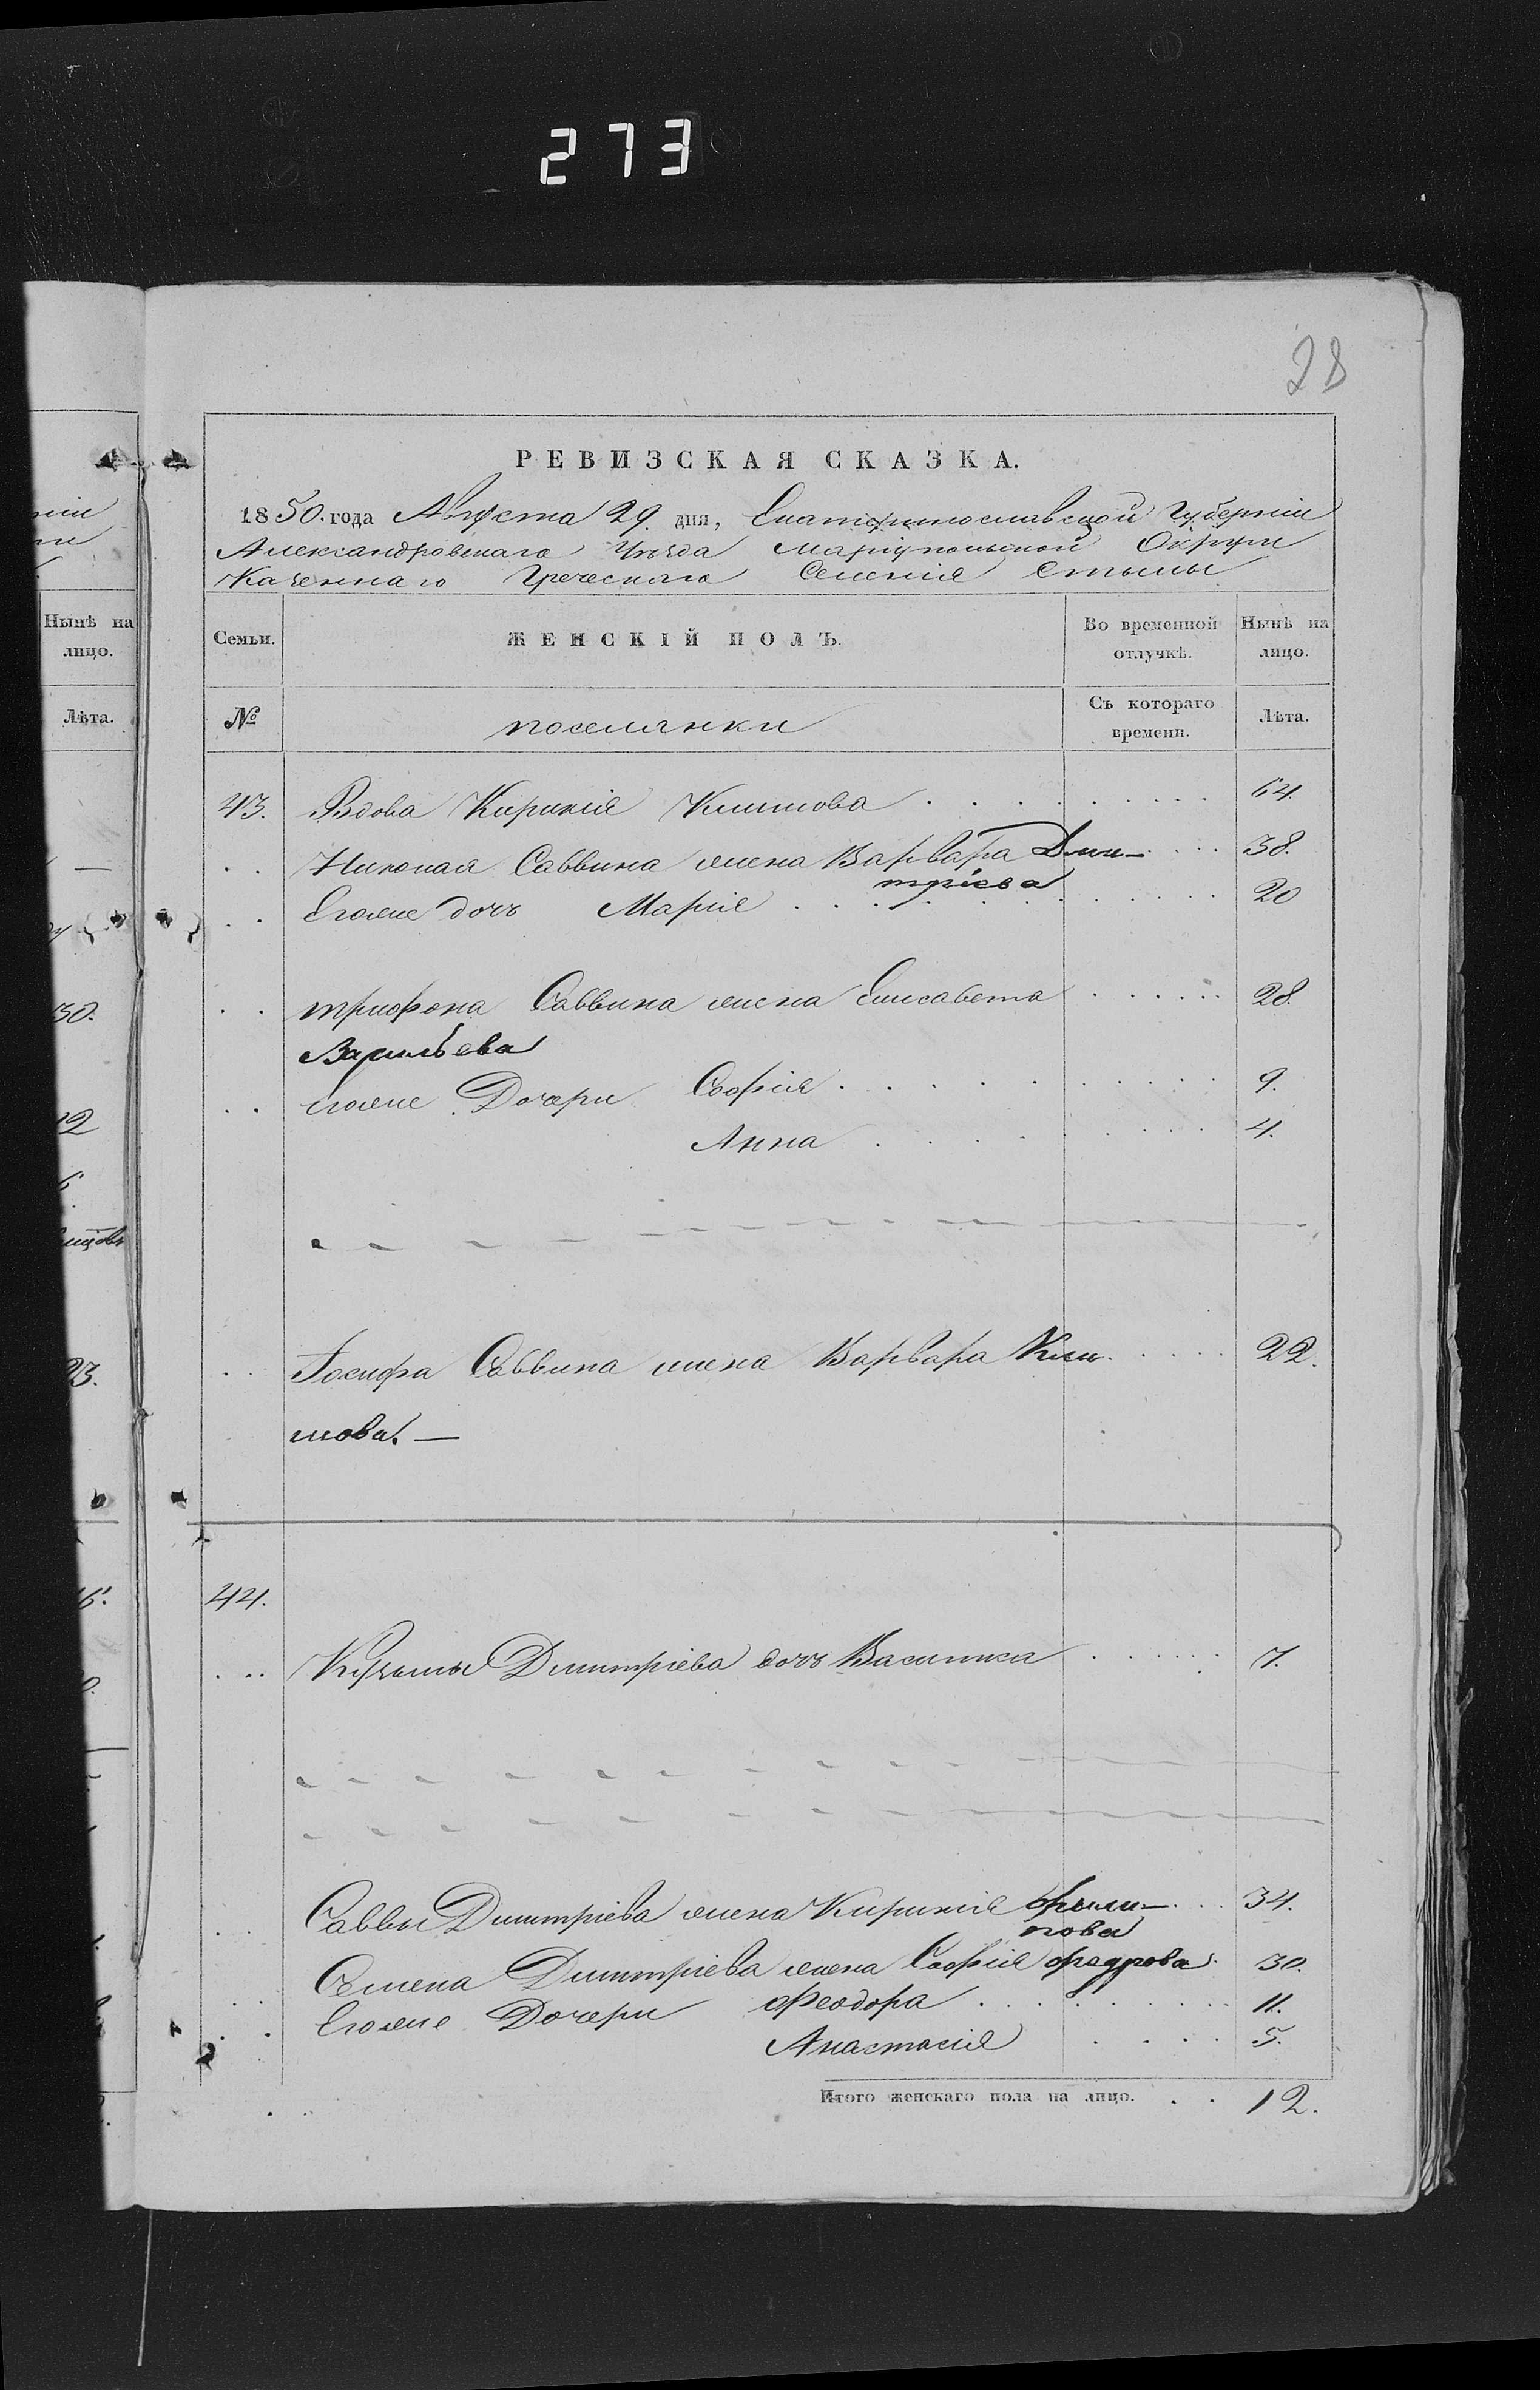 273
28
РЕВИЗСКАЯ СКАЗКА.
1850. года Августа 29. дня, Екатеринославской Губерніи
Александровскаго Уезда Маріупольской Округи
Казеннаго Греческаго Селенія Стылы
Семьи.
ЖЕНСКІЙ ПОЛЪ.
Во временной отлучкѣ.
Нынѣ на лицо.
№
поселянки
Съ котораго времени.
Лѣта.
43. Вдова Кирикія Климова 64.
Николая Саввина жена Варвара Дми- 38.
тріева
Егоже дочь Марія 20
трифона Саввина жена Елисавета 28.
Васильева
егоже Дочери Софія 9.
Анна 4.
Іосифа Саввина жена Варвара Кли 22.
мова. —
44.
Кузьмы Дмитріева дочь Василиса 7.
Саввы Дмитріева жена Кирикія Фили- 34.
пова
Семена Дмитріева жена Софія Федрова 30.
Егоже Дочери Феодора 11.
Анастасія 5.
Итого женскаго пола на лицо. 12.
Нынѣ на
лицо.
Лѣта.
30.
12
23.